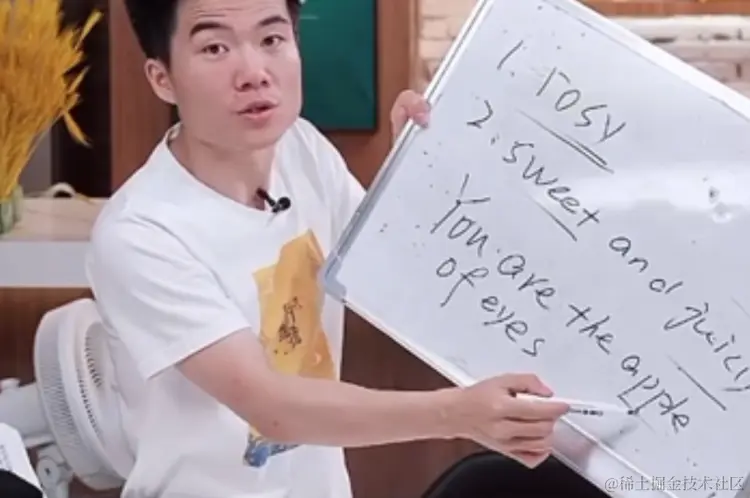 1. rosy
2. sweet and juicy
You are the apple
of eyes
@稀土掘金技术社区